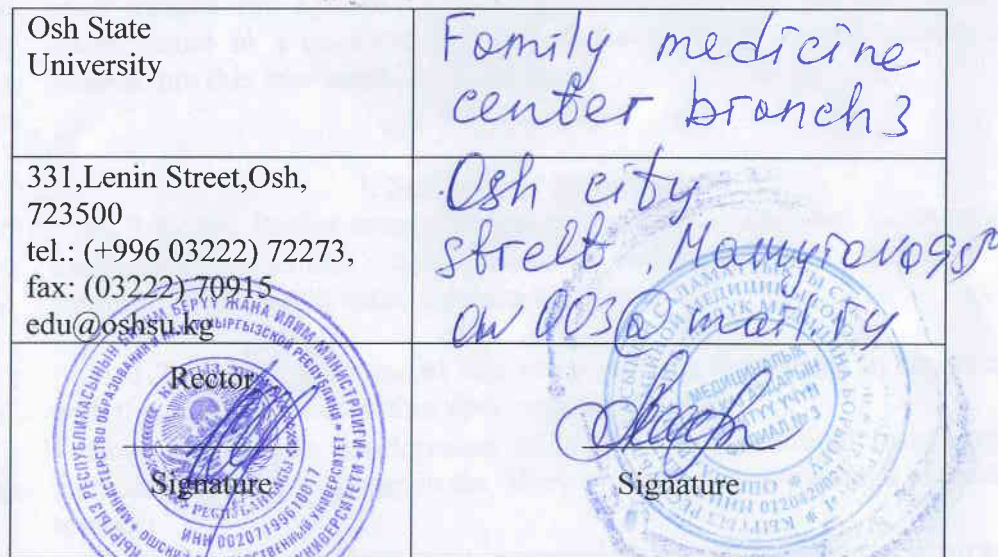 Osh State
University
Family medicine
center branch 3
331,Lenin Street,Osh,
723500
tel.: (+996 03222) 72273,
fax: (03222) 70915
edu@oshsu.kg
Osh city
street.
003@mail.ru
Rector
Signature
Signature
КЫРГЫЗ РЕСПУБЛИКАСЫНЫН БИЛИМ БЕРҮҮ ЖАНА ИЛИМ МИНИСТРЛИГИ
МИНИСТЕРСТВО ОБРАЗОВАНИЯ И НАУКИ КЫРГЫЗСКОЙ РЕСПУБЛИКИ
ИНН 00207199610017
МЕДИЦИНАЛЫК
ФИЛИАЛ № 3